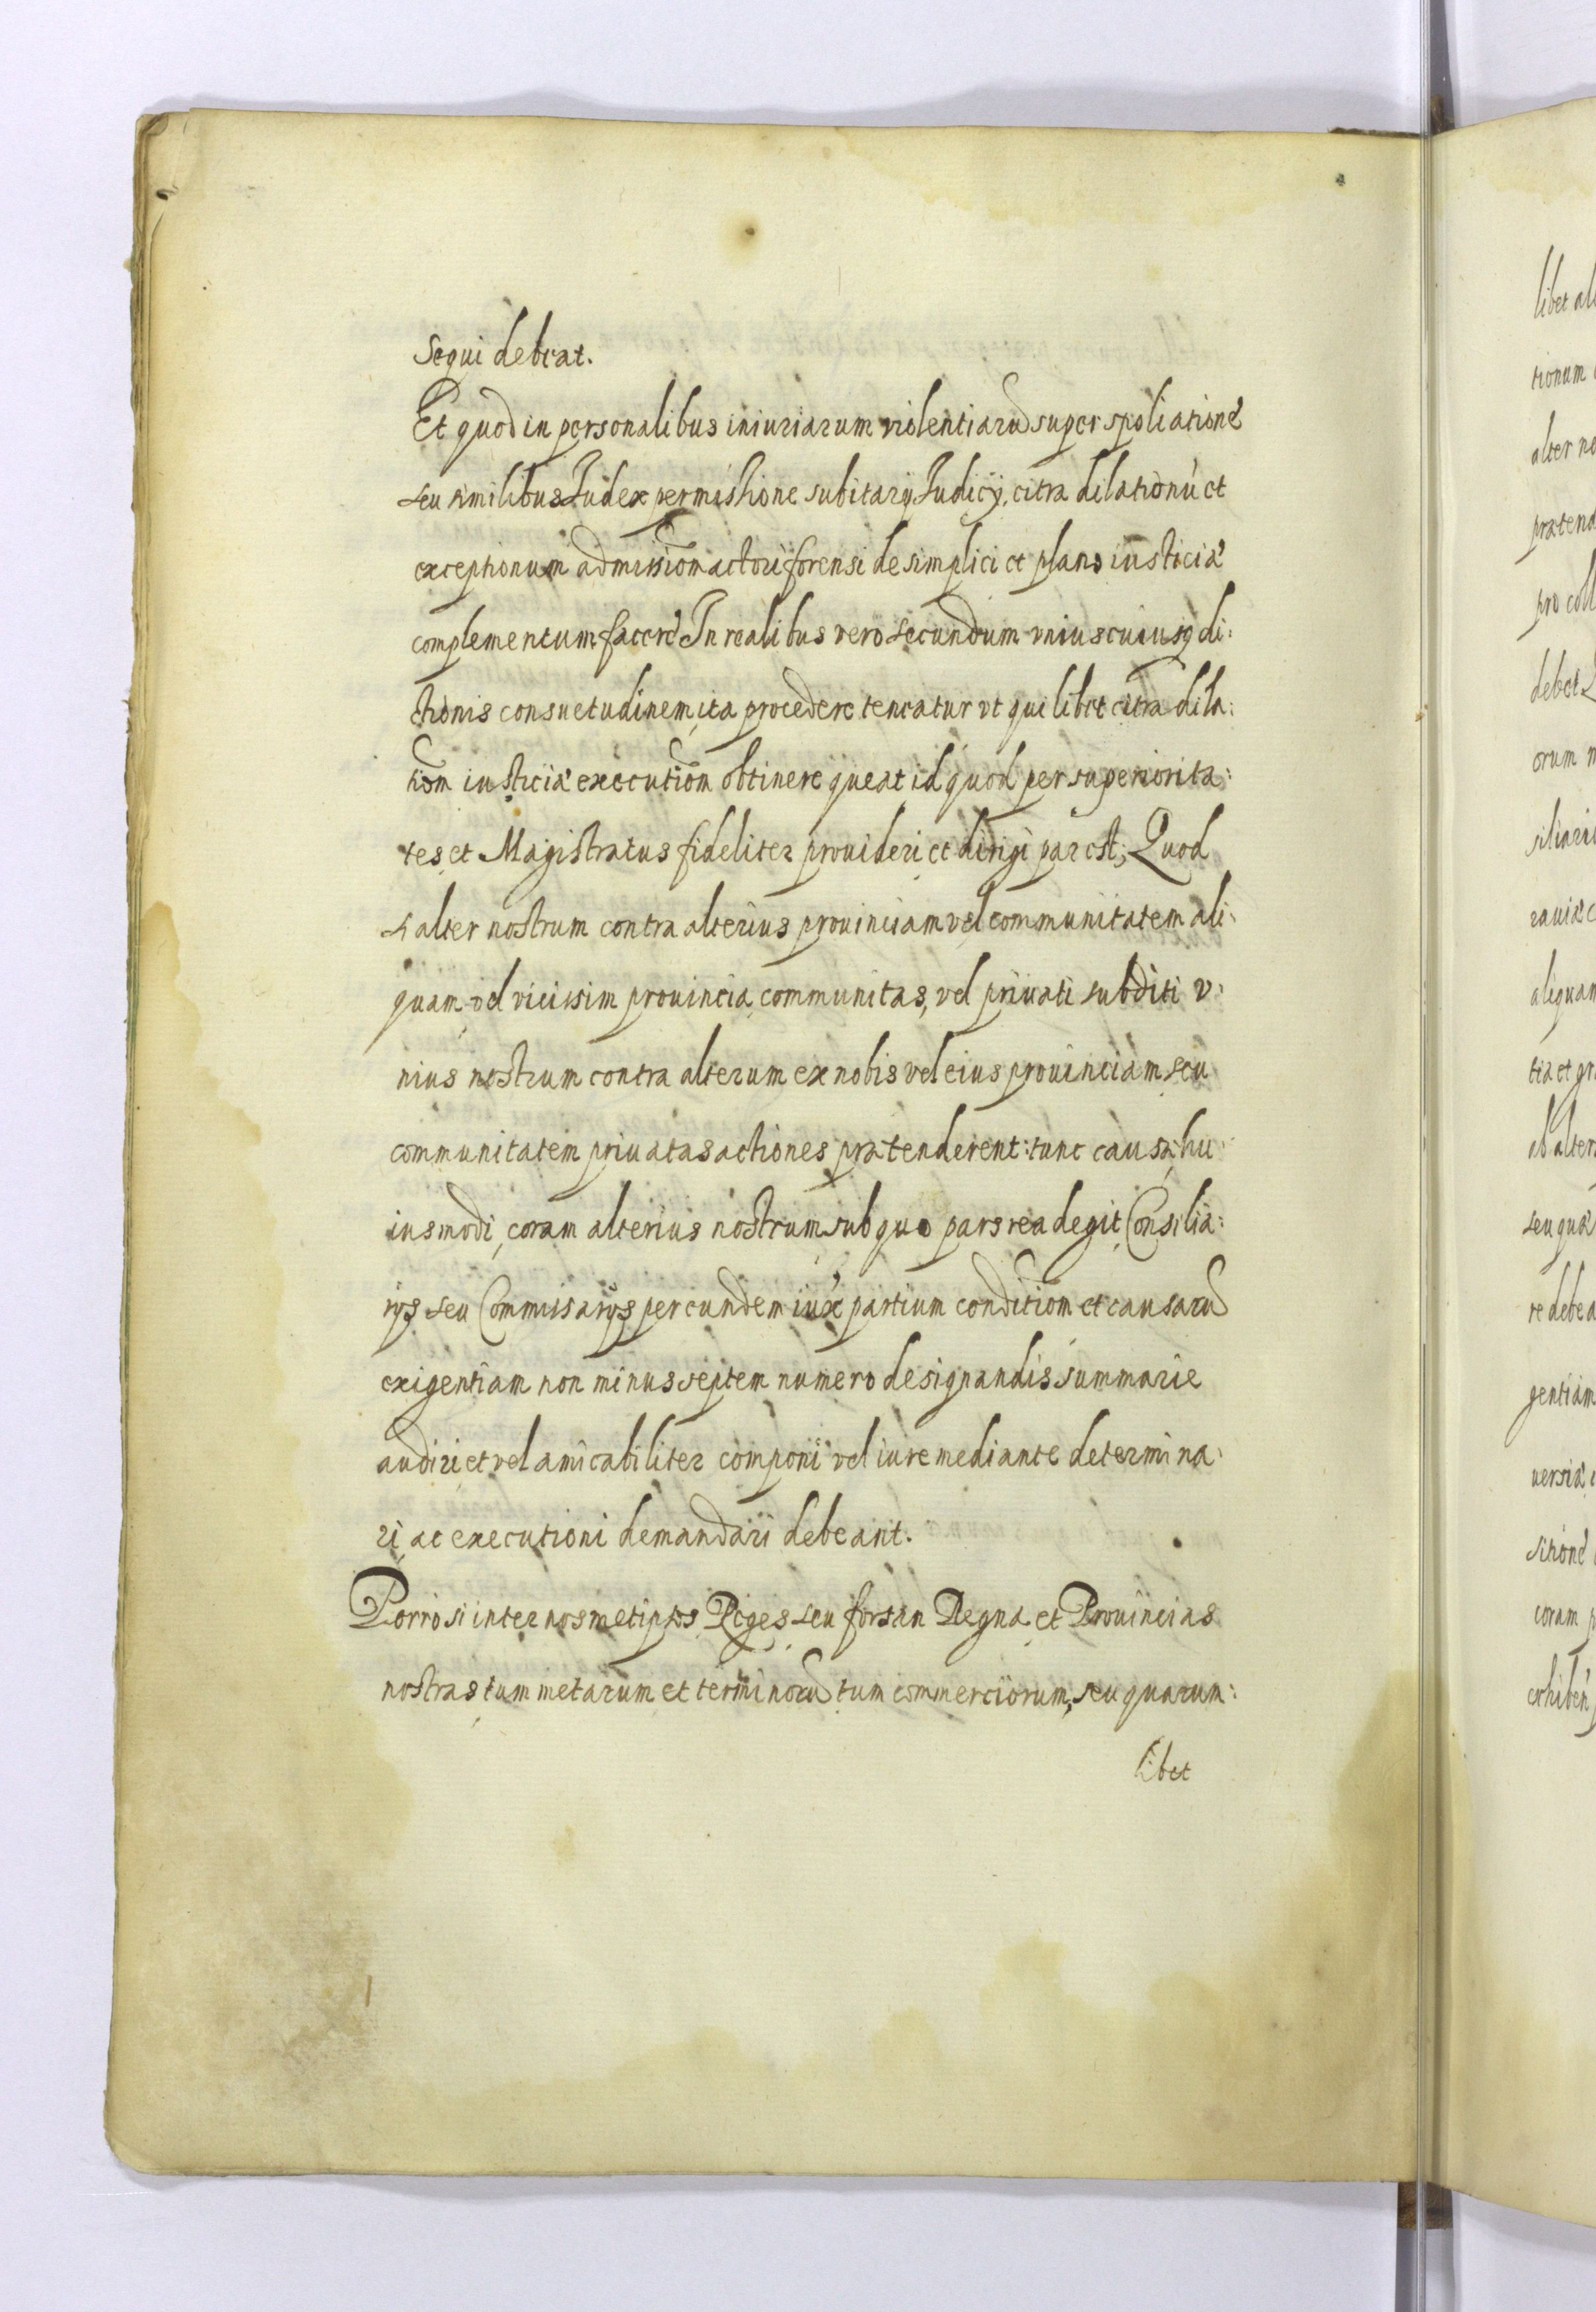 Sequi debeat.
Et quod in personalibus iniuriarum violentiarū super spoliatione
seu similibus Iudex permissione subitarÿ Iudicÿ, citra dilationū et
exceptionum admissiom̄ actori forensi de simplici et plano iusticiæ
complementum facere In realibus vero secundum vniuscuiusq di:
ctionis consuetudinem, ita procedere teneatur vt quilibet citra dila:
tiom̄ iusticiæ executiom̄ obtinere queat id quod per superiorita:
tes et Magistratus fideliter prouideri et dirigi par est; Quod
si alter nostrum contra alterius prouinciam vel communitatem ali:
quam vel vicissim prouincia communitas, vel priuati subditi v:
nius nostrum contra alterum ex nobis vel eius prouinciam seu
communitatem priuatas actiones prætenderent: tunc causæ hu
iusmodi, coram alterius nostrum sub quo pars rea degit, Consilia:
rÿs seu Commissarÿs per eundem iux̄ partium conditiom̄ et causarū
exigentiam non minus septem numero designandis summarie
audiri et vel amicabiliter componi vel iure mediante determina:
ri, ac executioni demandari debeant.
Porro si inter nosmetipsos Reges seu forsan Regna et Prouincias
nostras tum metarum et terminorū tum commerciorum, seu quarum:
libet
libet al
tionum
alter no
prætend
pro coll
debet
orum
siliarÿ
aliquam
tia et gr
ab alter
seu quæ
re debea
gentiam
uersiæ
sitione
coram p